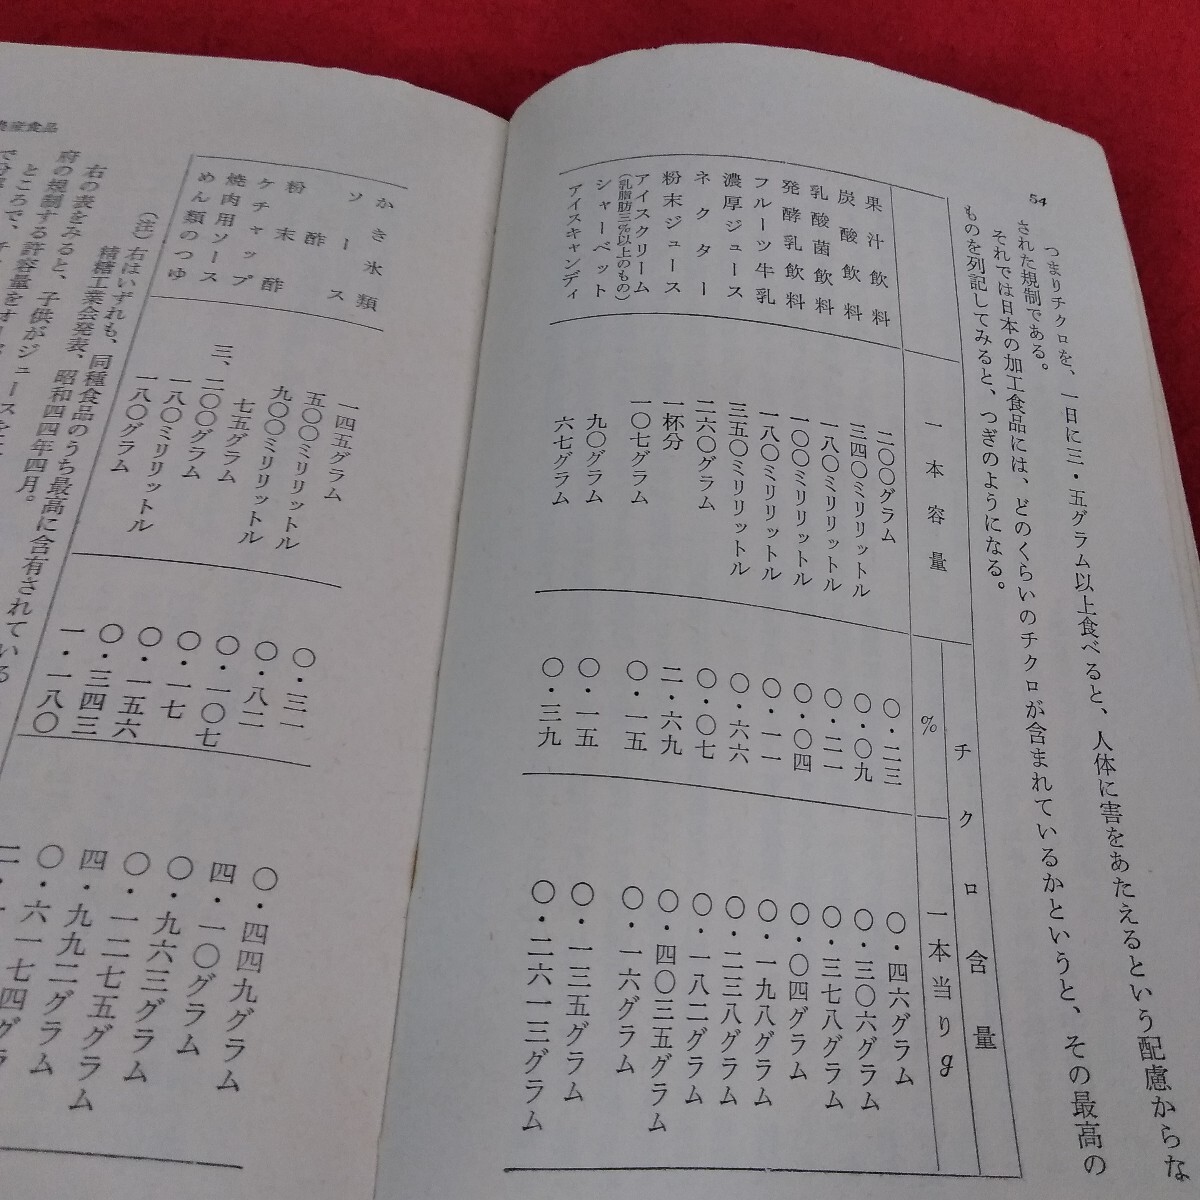 54
つまりチクロを、一日に三・五グラム以上食べると、人体に害をあたえるという配慮からな
された規制である。
それでは日本の加工食品には、どのくらいのチクロが含まれているかというと、その最高の
ものを列記してみると、つぎのようになる。
一本容量
チクロ含量
%
一本当りg
果汁飲料 二〇〇グラム 〇・二三 〇・四六グラム
炭酸飲料 三四〇ミリリットル 〇・〇九 〇・三〇六グラム
乳酸菌飲料 一八〇ミリリットル 〇・二一 〇・三七八グラム
発酵乳飲料 一〇〇ミリリットル 〇・〇四 〇・〇四グラム
フルーツ牛乳 一八〇ミリリットル 〇・一一 〇・一九八グラム
濃厚ジュース 三五〇ミリリットル 〇・六六 〇・二三八グラム
ネクター 二六〇グラム 〇・〇七 〇・一八二グラム
粉末ジュース 一杯分 二・六九 〇・四〇三五グラム
アイスクリーム
(乳脂肪三%以上のもの) 一〇七グラム 〇・一五 〇・一六グラム
シャーベット 九〇グラム 〇・一五 〇・一三五グラム
アイスキャンディ 六七グラム 〇・三九 〇・二六一三グラム
かき氷類 一四五グラム 〇・三一 〇・四四九グラム
ソース 五〇〇ミリリットル 〇・八二 四・一〇グラム
酢 九〇〇ミリリットル 〇・一〇七 〇・九六三グラム
粉末酢 七五グラム 〇・一七 〇・一二七五グラム
ケチャップ 三、二〇〇グラム 〇・一五六 四・九九二グラム
焼肉用ソース 一八〇ミリリットル 〇・三四三 〇・六一七四グラ
めん類のつゆ 一八〇グラム 一・一八〇
(注) 右はいずれも、同種食品のうち最高に含有されている
精糖工業会発表、昭和四四年四月。
右の表をみると、子供がジュースを
府の規制する許容量をオー
ところで、チ
産食品